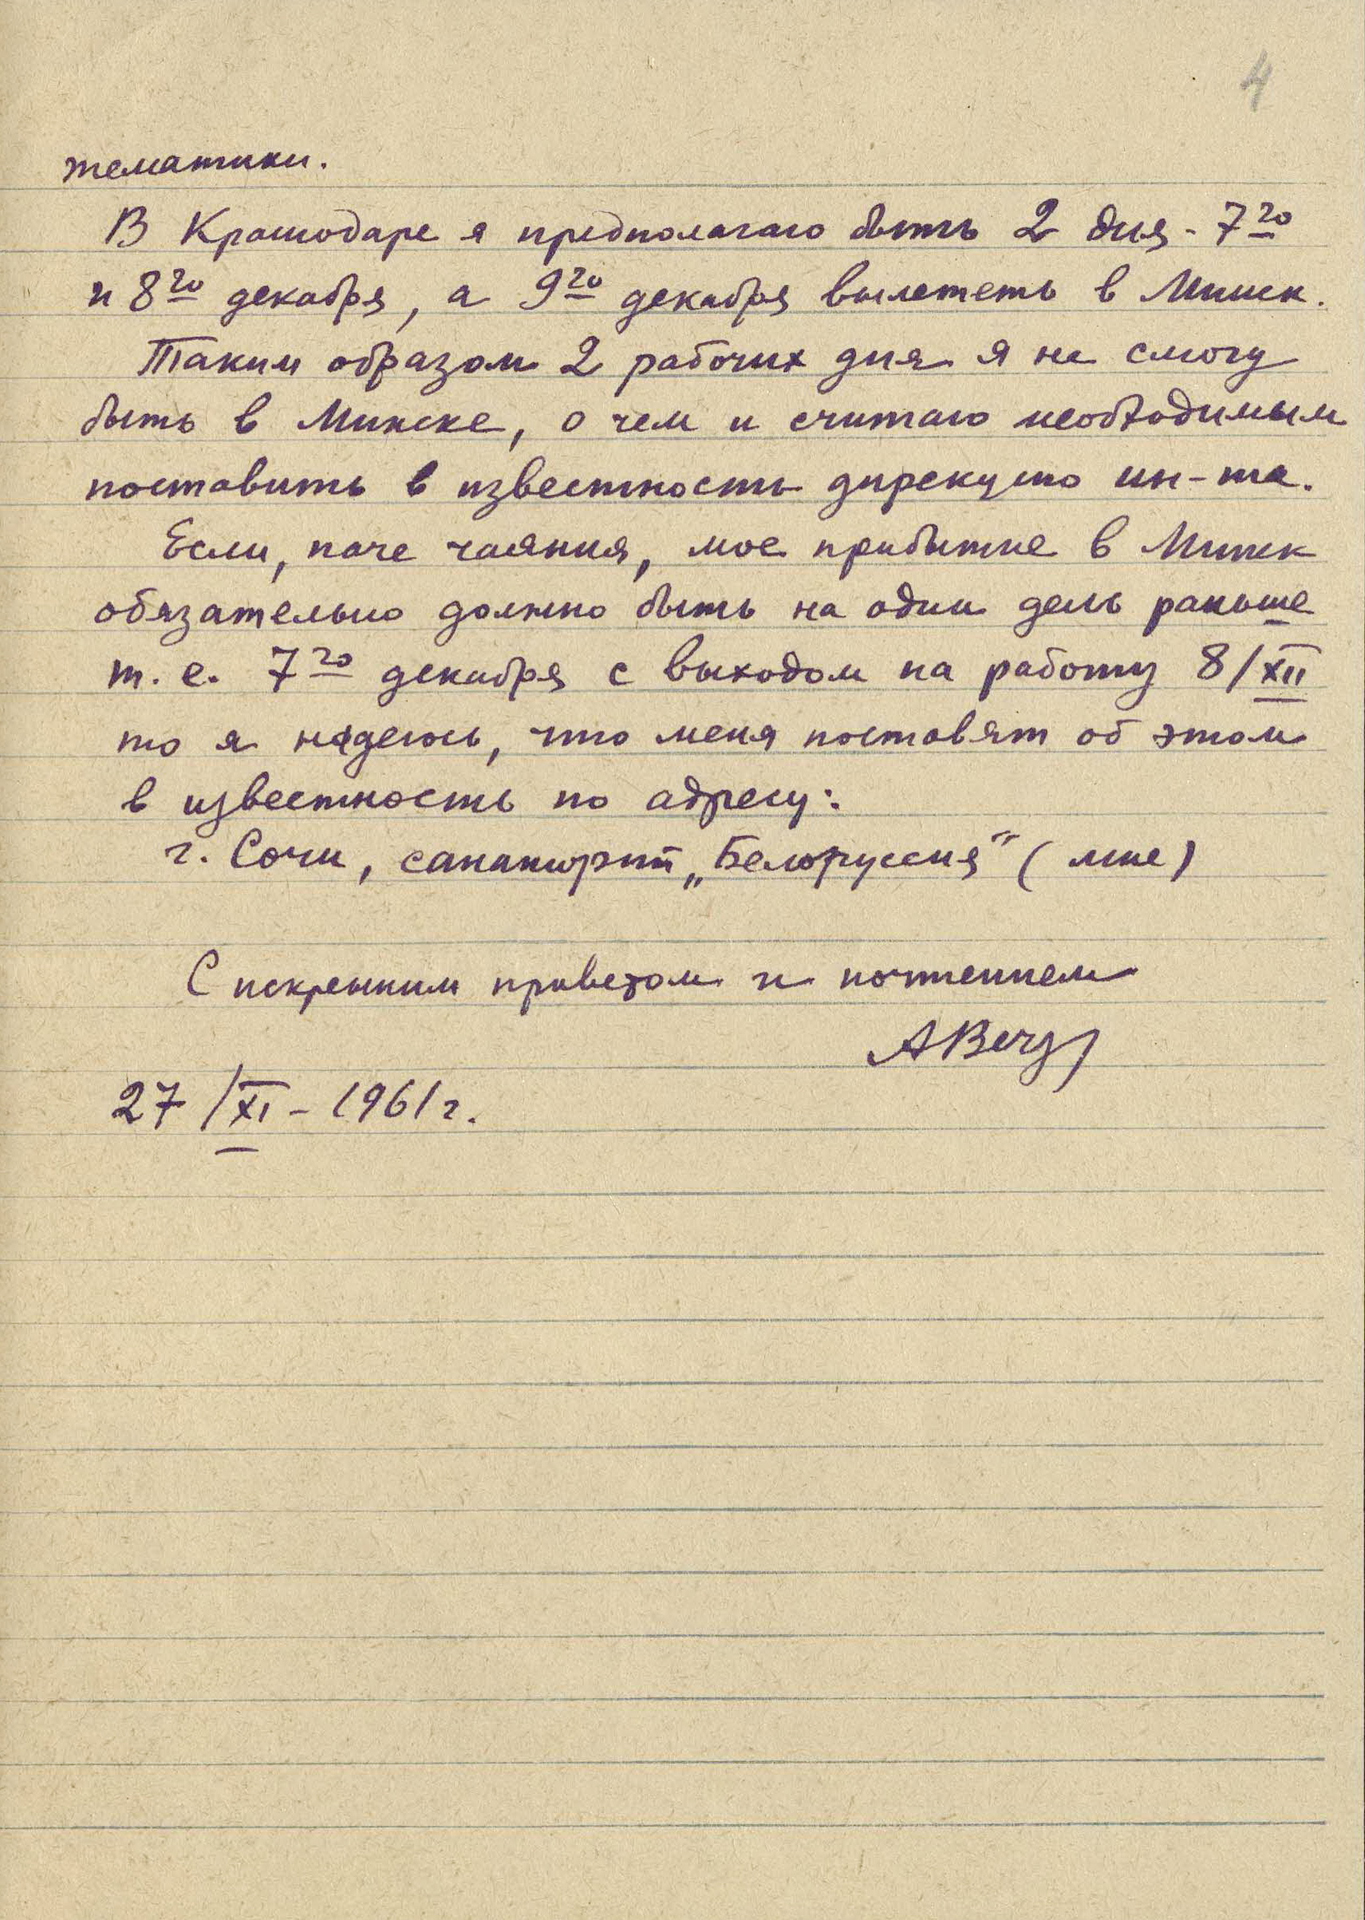 4
тематики.
В Краснодаре я предполагаю быть 2 дня - 7го
и 8го декабря, а 9го декабря вылететь в Минск.
Таким образом 2 рабочих дня я не смогу
быть в Минске, о чем и считаю необходимым
поставить в известность дирекцию ин-та.
Если, паче чаяния, мое прибытие в Минск
обязательно должно быть на один день раньше
т. е. 7го декабря с выходом на работу 8/XII
то я надеюсь, что меня поставят об этом
в известность по адресу:
г. Сочи, санаторий „Белоруссия“ (мне)
С искренним приветом и почтением
27/XI - 1961 г.